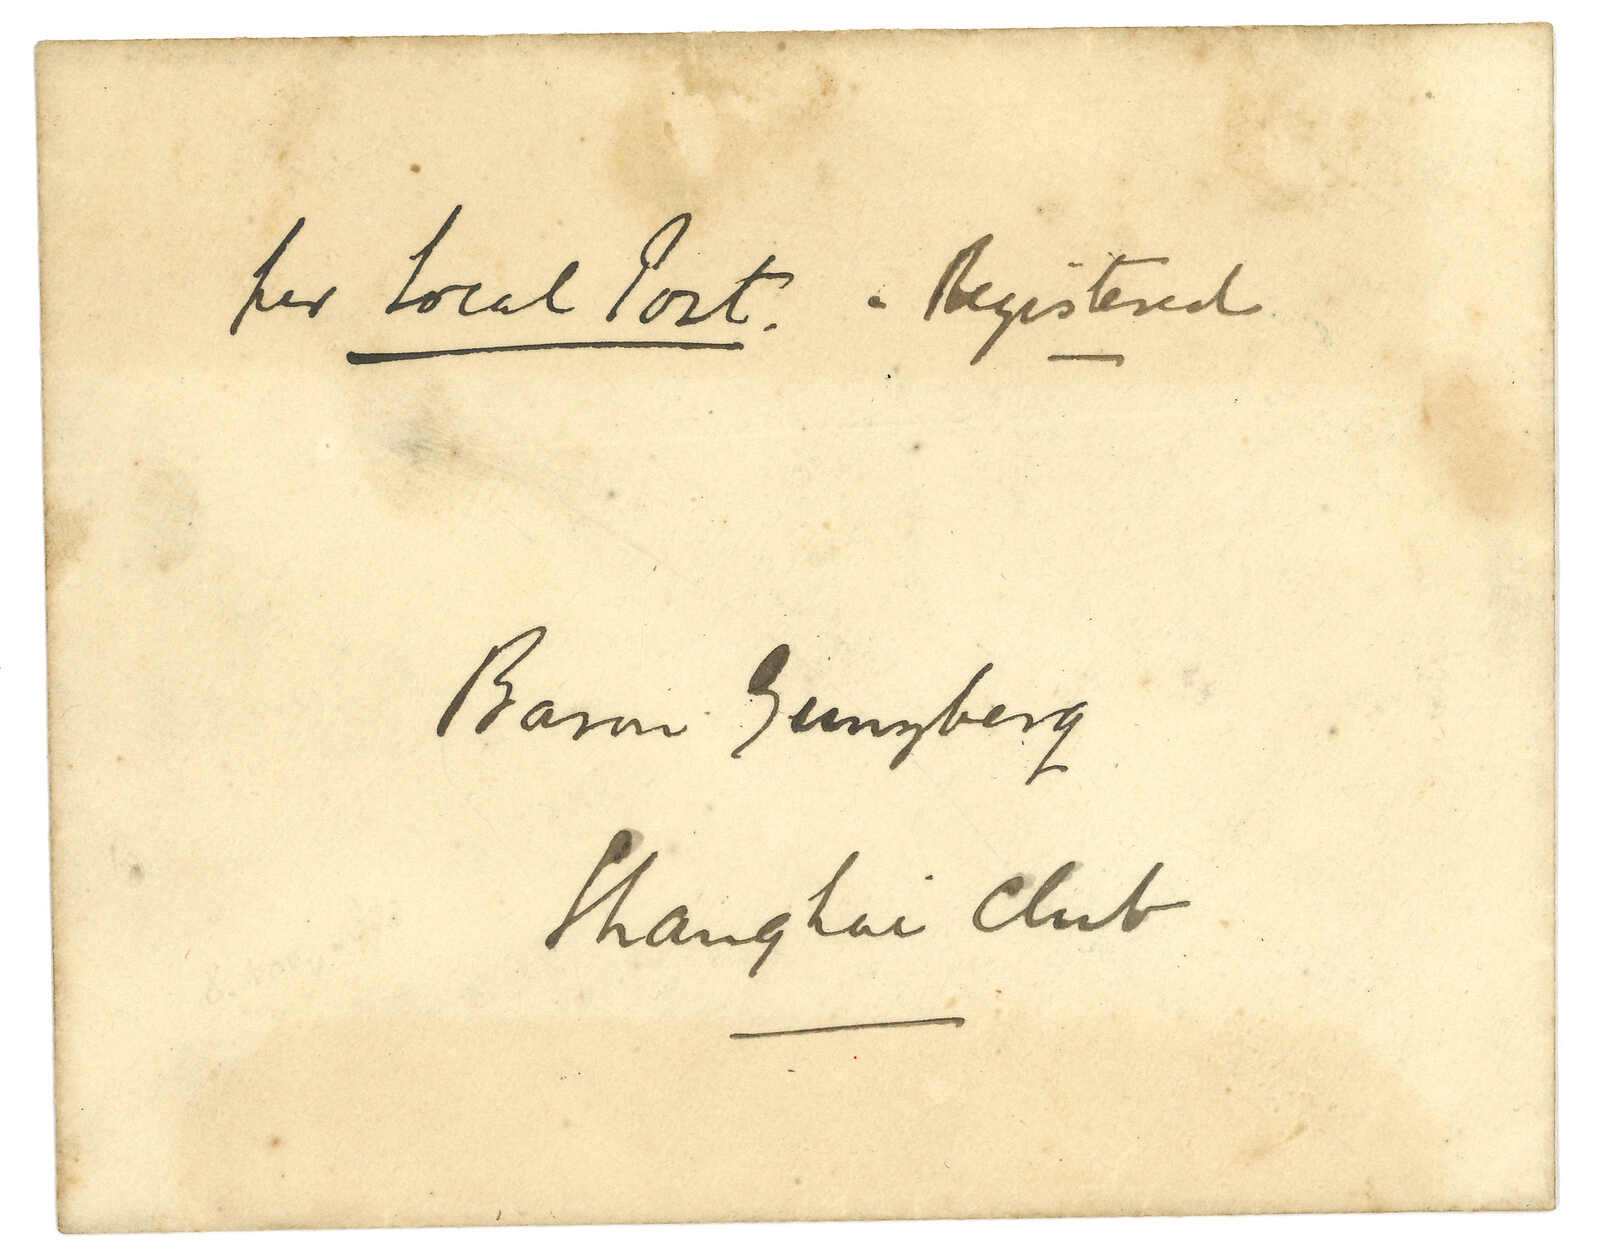 per Local Post. - Registered
Baron Gunzberg
Shanghai Club